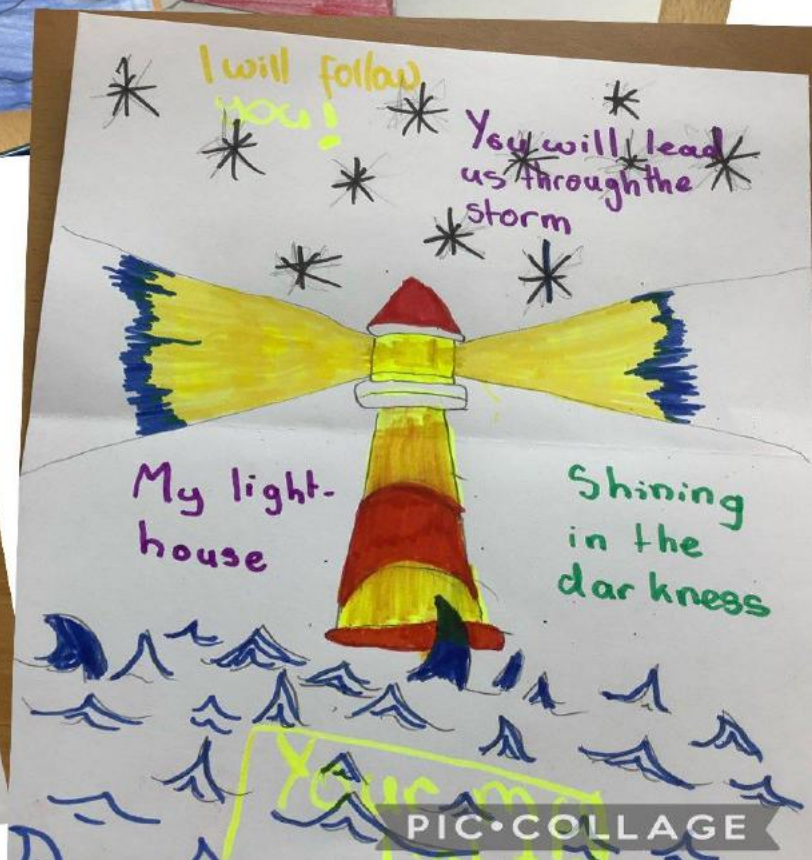 I will follow
you!
You will lead
us through the
storm
My light-
house
Shining
in the
darkness
Your
PIC•COLLAGE